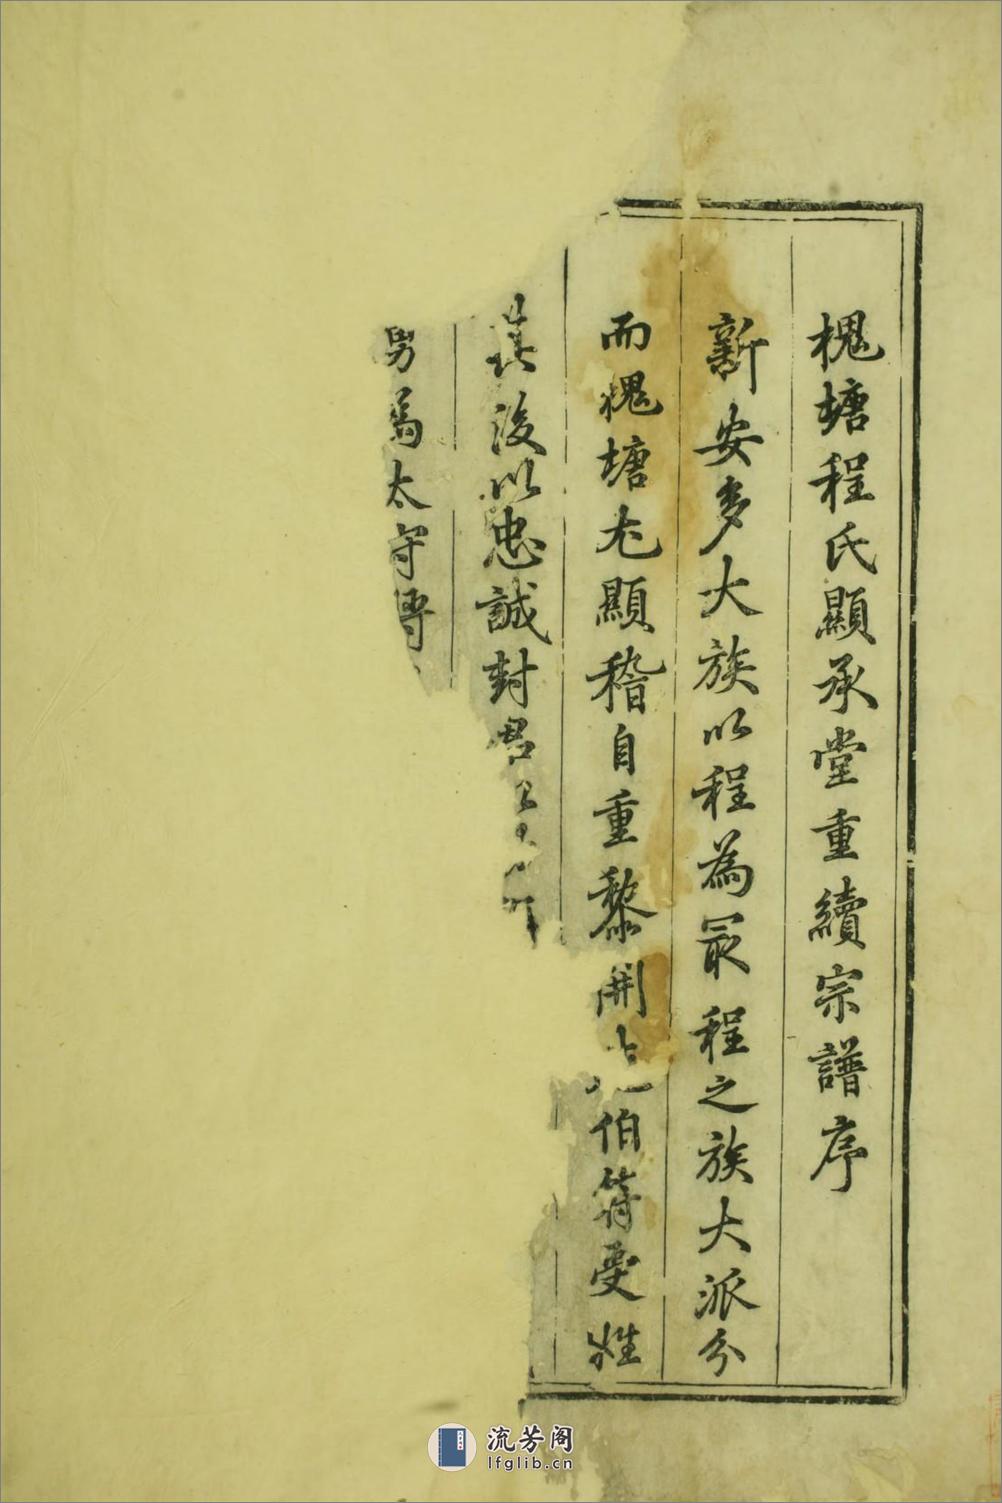 槐塘程氏顯承堂重續宗譜序
新安多大族以程為冣程之族大派分
而槐塘尤顯稽自重黎開伯符受姓
其後以忠誠封君
男為太守
流芳阁
lfglib.cn